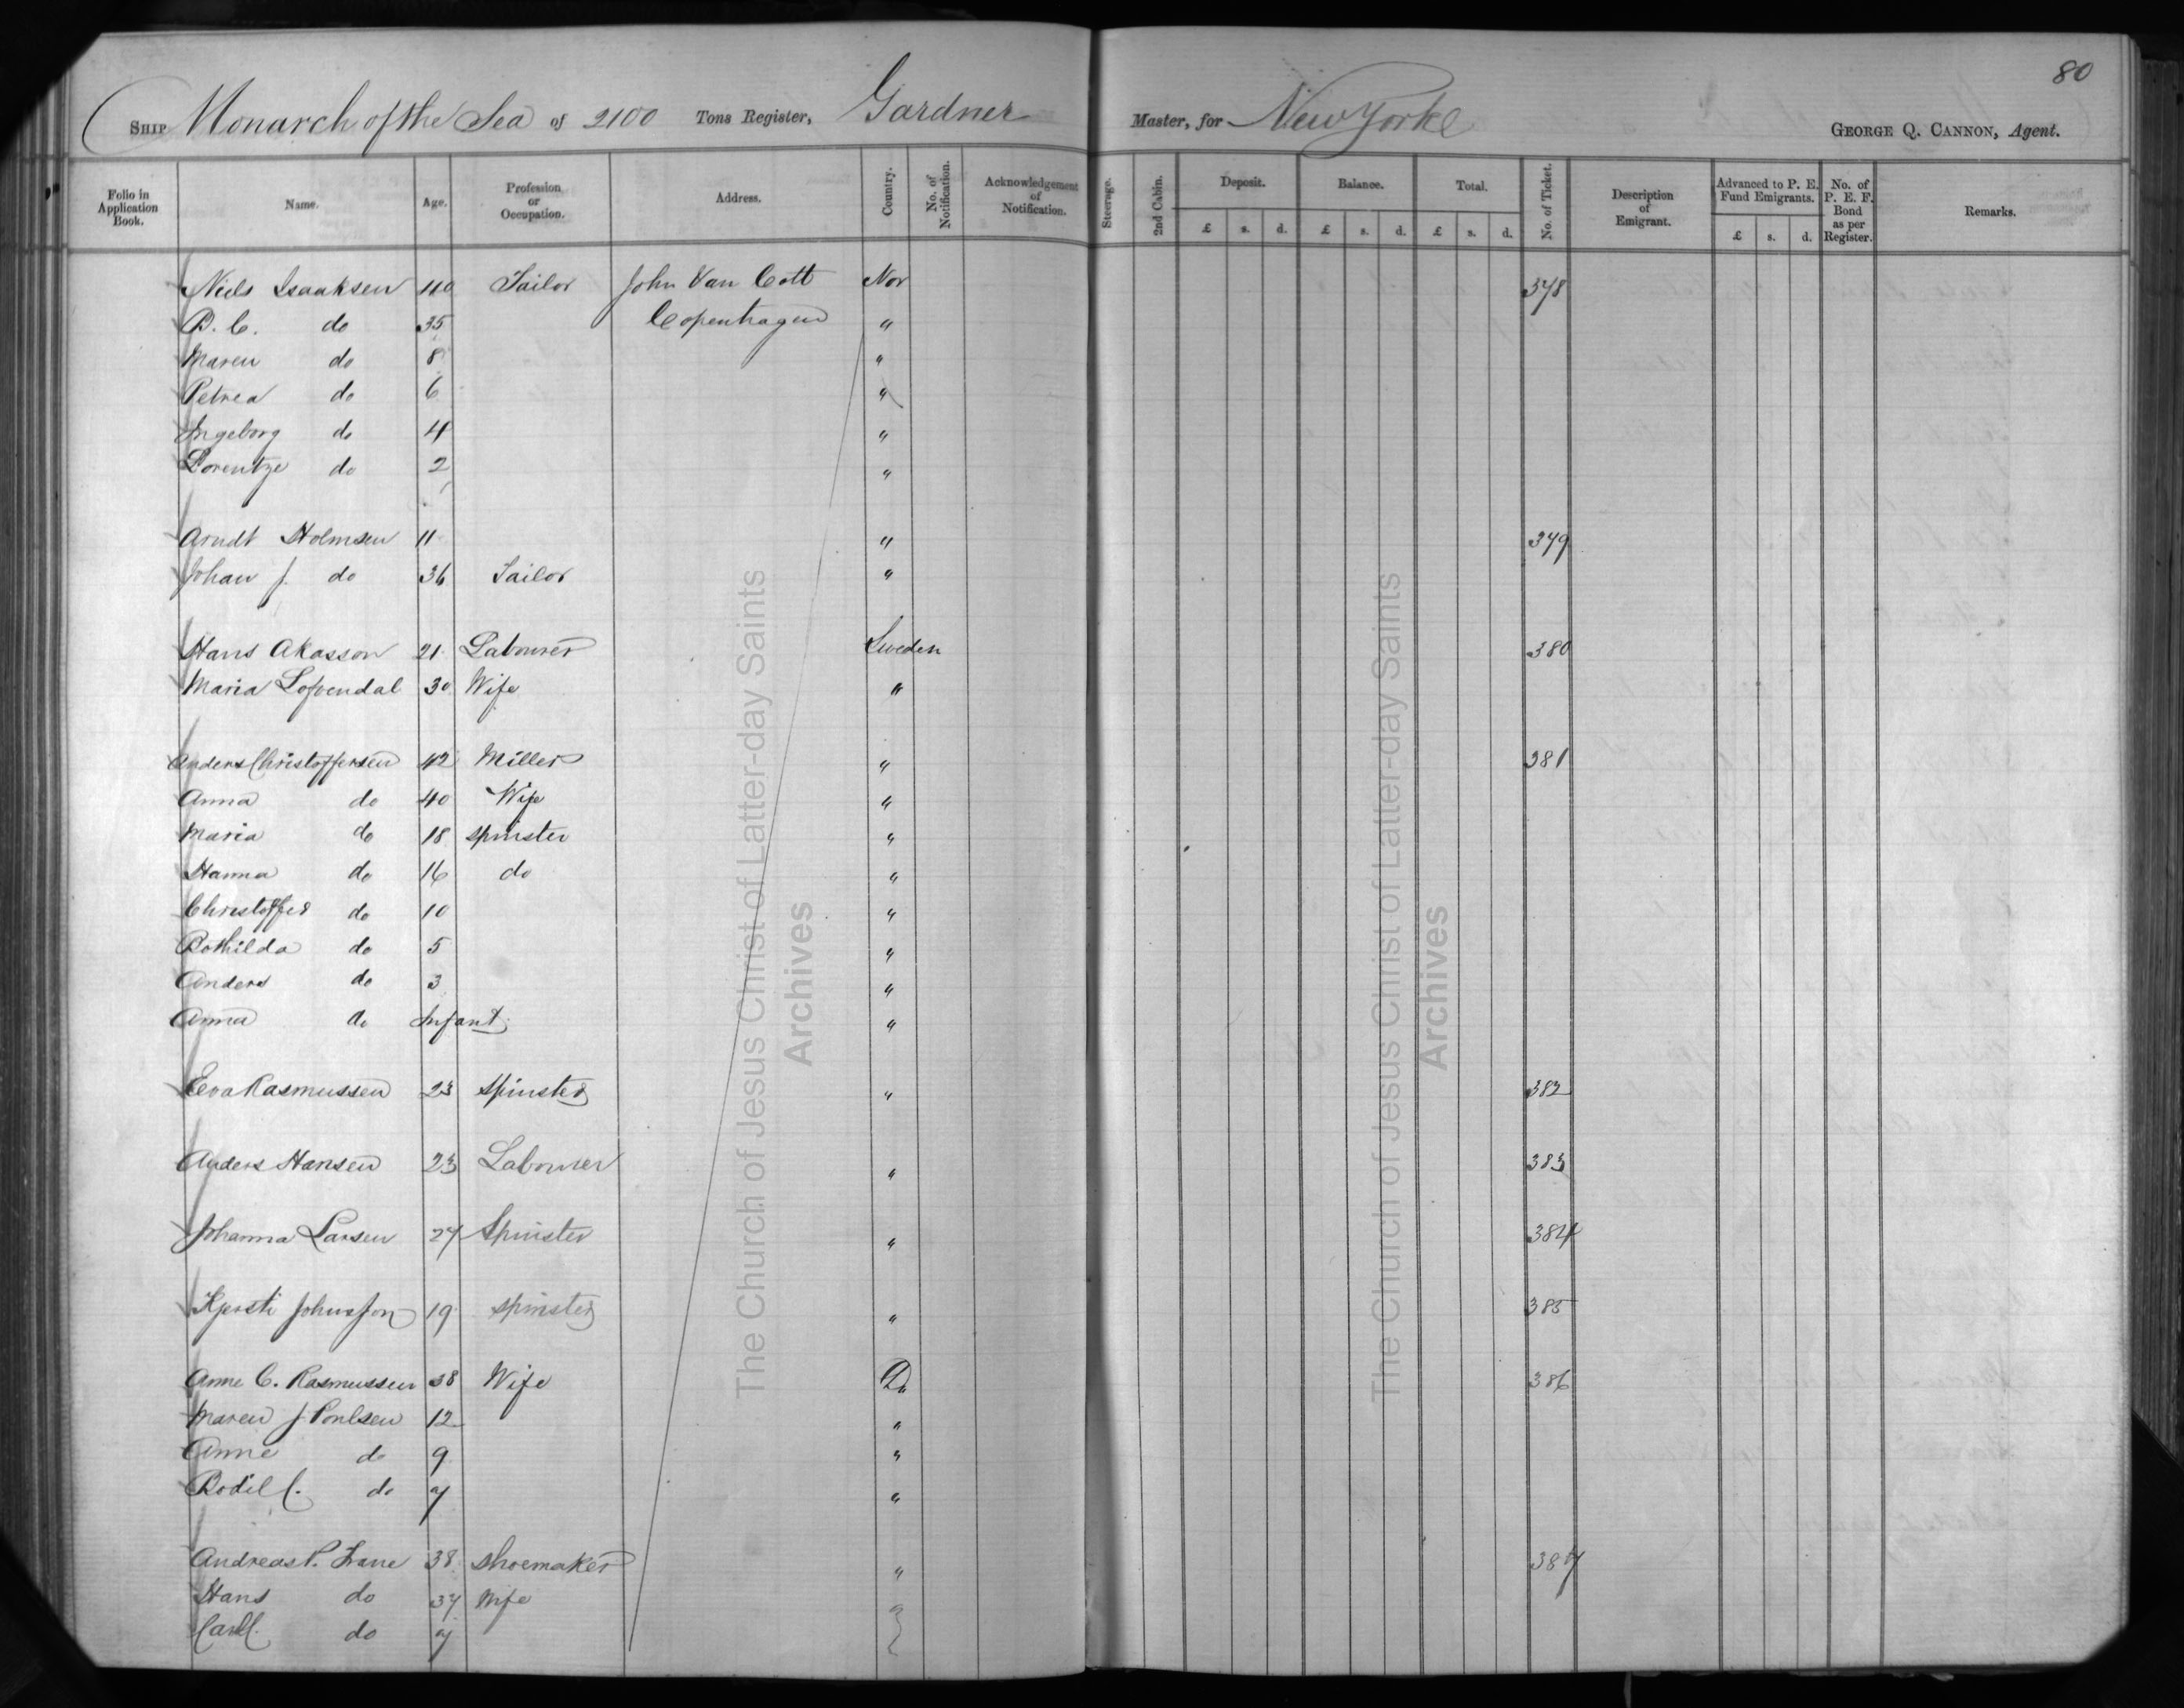 80
Ship Monarch of the Sea of 2100 Tons Register, Gardner Master, for New Yorke George Q. Cannon, Agent.
Folio in Application Book. Name. Age. Profession or Occupation. Address. Country. No. of Notification. Acknowledgement of Notification. Steerage. 2nd Cabin. Deposit. Balance. Total. No. of Ticket. Description of Emigrant. Advanced to P. E. Fund Emigrants. No. of P. E. F. Bond as per Register. Remarks.
£ s. d. £ s. d. £ s. d. £ s. d.
Niels Isaaksen 40 Tailor John Van Cott Nor 378
B. C. do 35 Copenhagen "
Maren do 8 "
Petrea do 6 "
Ingeborg do 4 "
Lorentze do 2 "
Arndt Holmsen 11 " 379
Johan J. do 36 Tailor "
Hans Akasson 21 Labourer Sweden 380
Maria Lofvendal 30 Wife "
Anders Christoffersen 42 Miller " 381
Anna do 40 Wife "
Maria do 18 spinster "
Hanna do 16 do "
Christoffer do 10 "
Bothilda do 5 "
Anders do 3 "
Anna do Infant "
Eva Rasmussen 23 Spinster " 382
Anders Hansen 23 Labourer " 383
Johanna Larsen 27 Spinster " 384
Kjersti Johnsson 19 spinster " 385
Anne C. Rasmussen 38 Wife D 386
Maren J. Poulsen 12 "
Anne do 9 "
Bodil C. do 7 "
Andreas P. Frane 38 Shoemaker " 387
Hans do 37 Wife
Carl C. do 7
The Church of Jesus Christ of Latter-day Saints
Archives
The Church of Jesus Christ of Latter-day Saints
Archives